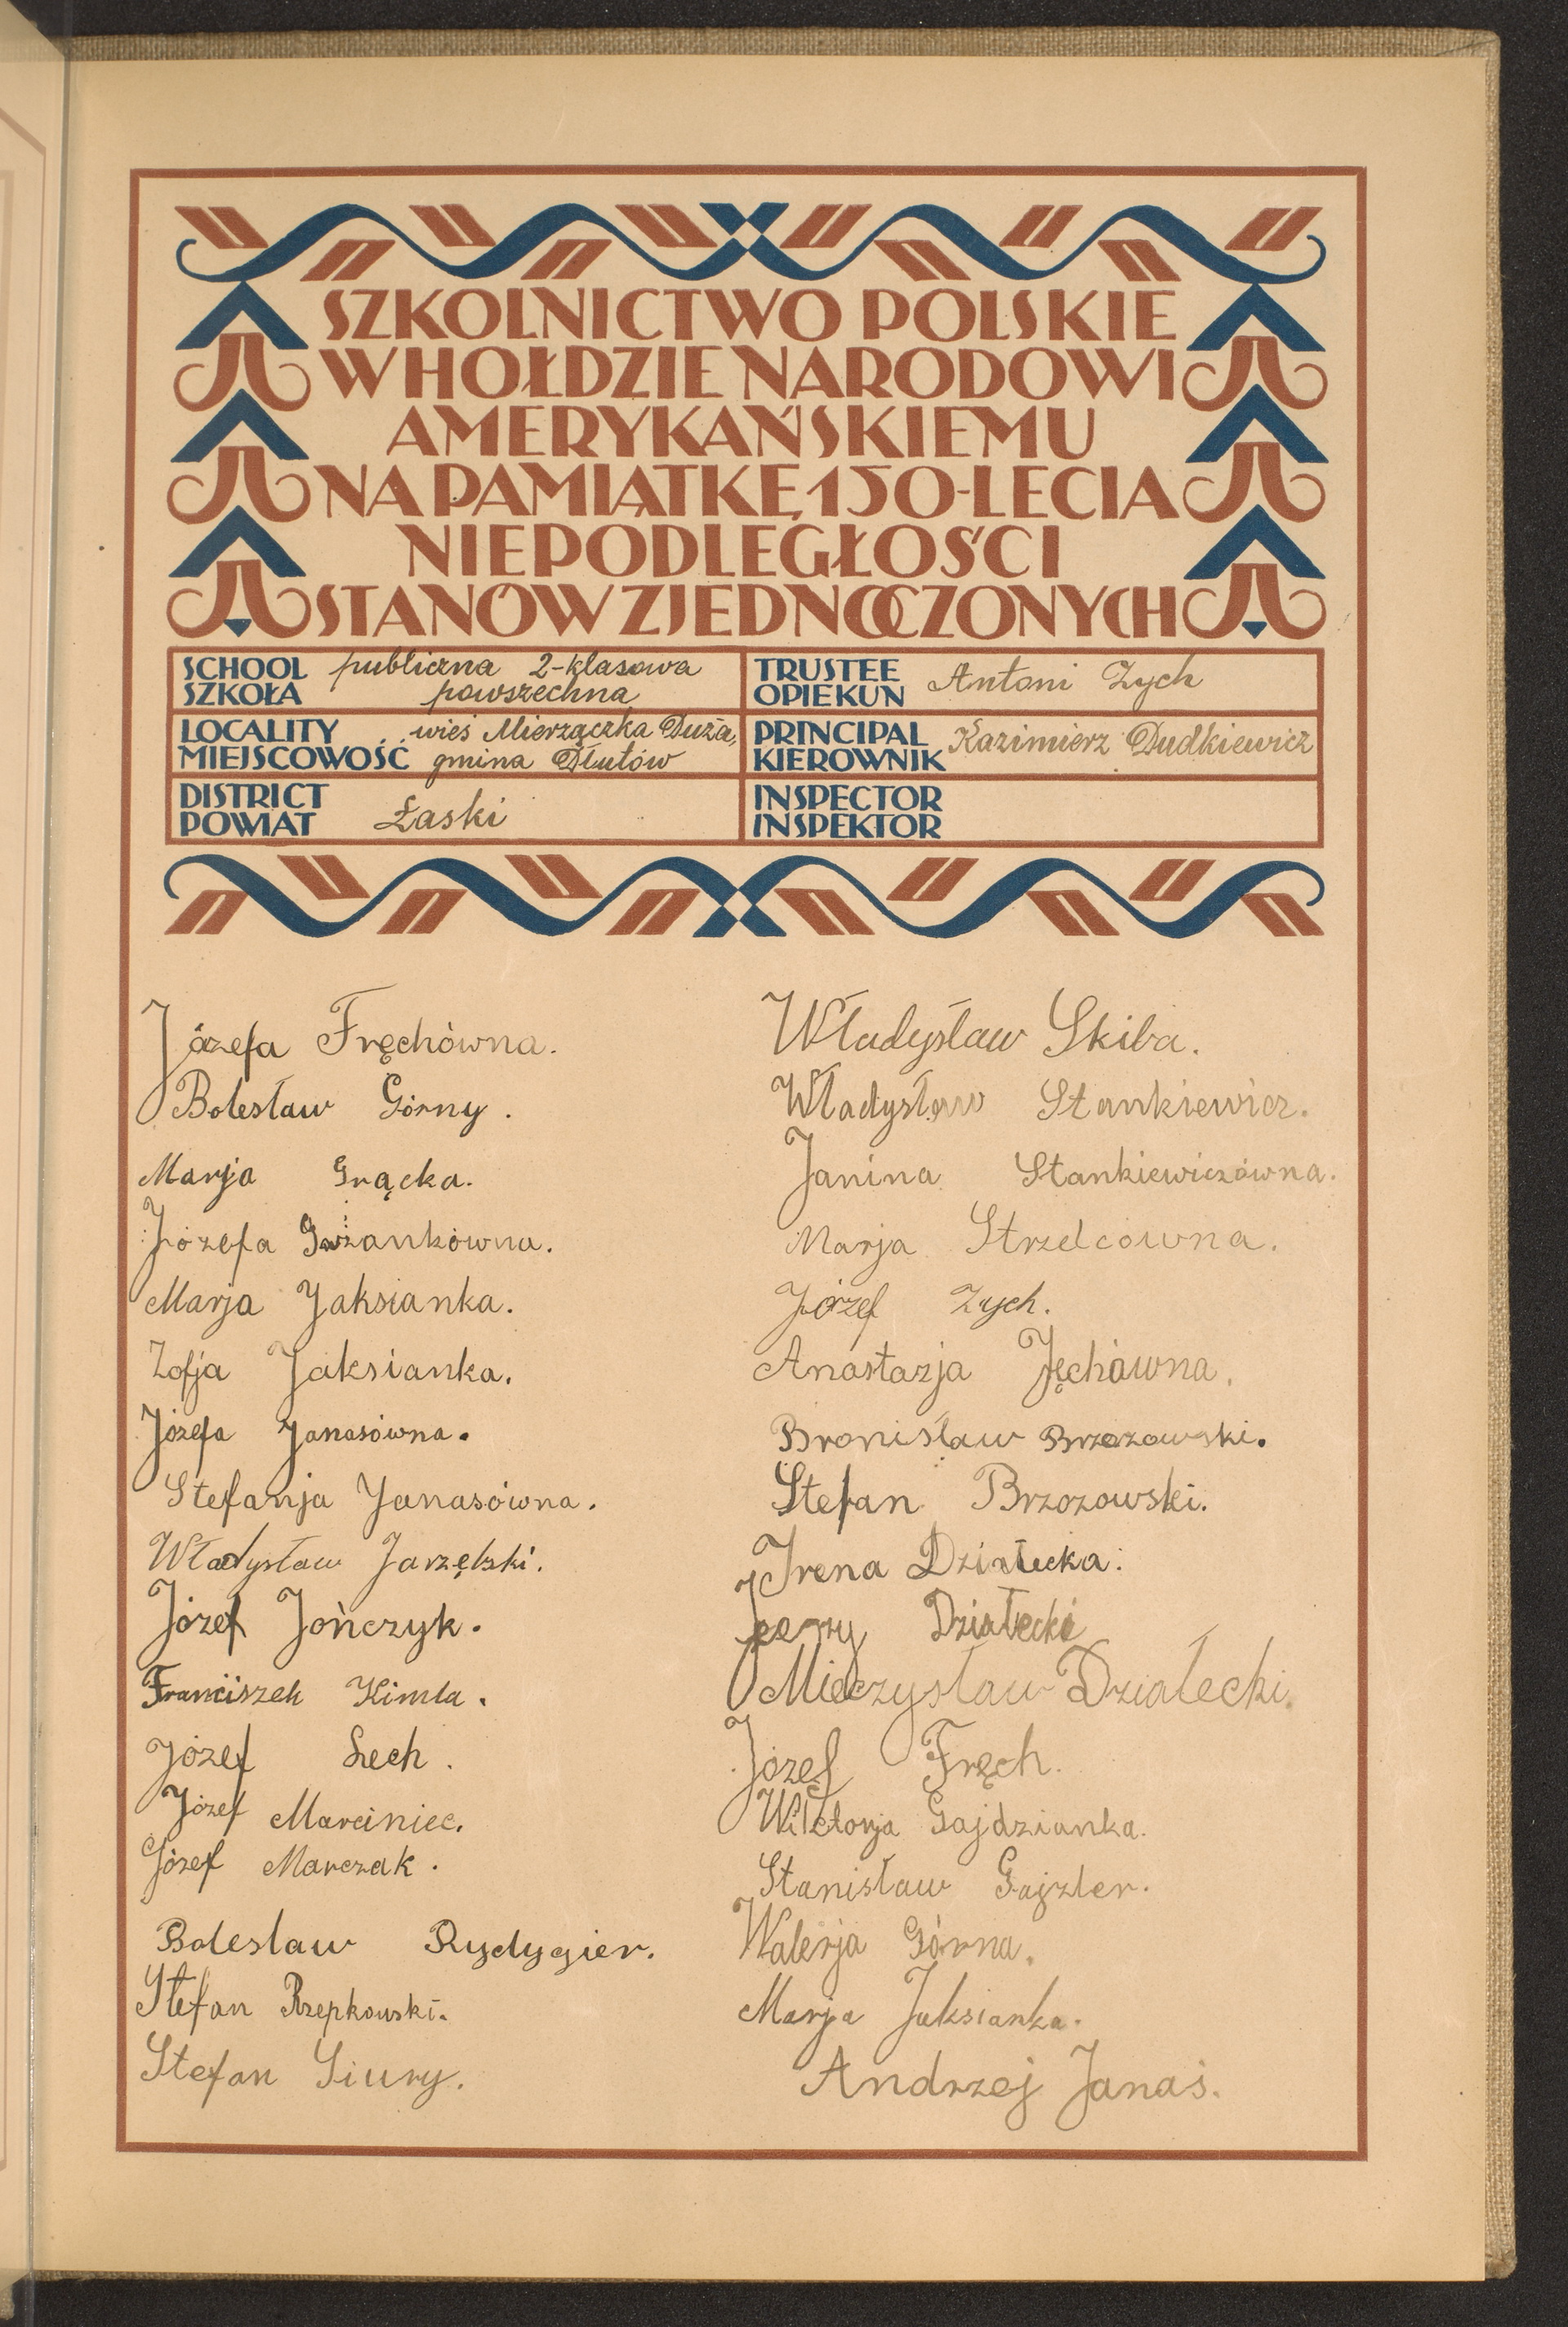 SZKOLNICTWO POLSKIE
W HOŁDZIE NARODOWI
AMERYKAŃSKIEMU
NA PAMIĄTKĘ 150-LECIA
NIEPODLEGŁOŚCI
STANÓW ZJEDNOCZONYCH
SCHOOL publiczna 2-klasowa
SZKOŁA powszechna
TRUSTEE
OPIEKUN Antoni Zych
LOCALITY wieś Mierzączka Duża,
MIEJSCOWOŚĆ gmina Dłutów
PRINCIPAL
KIEROWNIK Kazimierz Dudkiewicz
DISTRICT
POWIAT Łaski
INSPECTOR
INSPEKTOR
Józefa Fręchówna.
Bolesław Górny.
Marja Grącka.
Józefa
Marja Jaksianka.
Zofja Jaksianka.
Józefa Janasówna.
Stefanja Janasówna.
Władysław Jarzębski.
Józef Jończyk.
Franciszek Kimla.
Józef Lech.
Józef Marciniec.
Józef Marczak.
Bolesław Rydygier.
Stefan Rzepkowski.
Stefan Siury.
Władysław Skiba.
Władysław Stankiewicz.
Janina Stankiewiczówna.
Marja Strzelcówna.
Józef Zych.
Anastazja
Bronisław Brzozowski.
Stefan Brzozowski.
Irena Działecka.
Jerzy Działecki
Mieczysław Działecki.
Józef Fręch.
Wiktorja Gajdzianka.
Stanisław Gajzler.
Walerja Górna.
Marja Jaksianka.
Andrzej Janas.